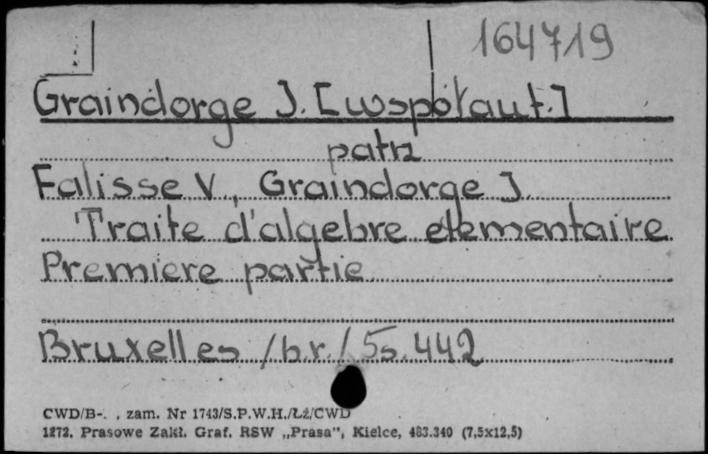 164719
Graindorge J. [współaut.]
patrz
Falisse V., Graindorge J.
Traite d'algebre elementaire
Premiere partie
Bruxelles /b.r./ 5s. 442
CWD/B-. , zam. Nr 1743/S.P.W.H./Łż/CWD
1272. Prasowe Zakł. Graf. RSW „Prasa", Kielce, 483.340 (7,5x12,5)